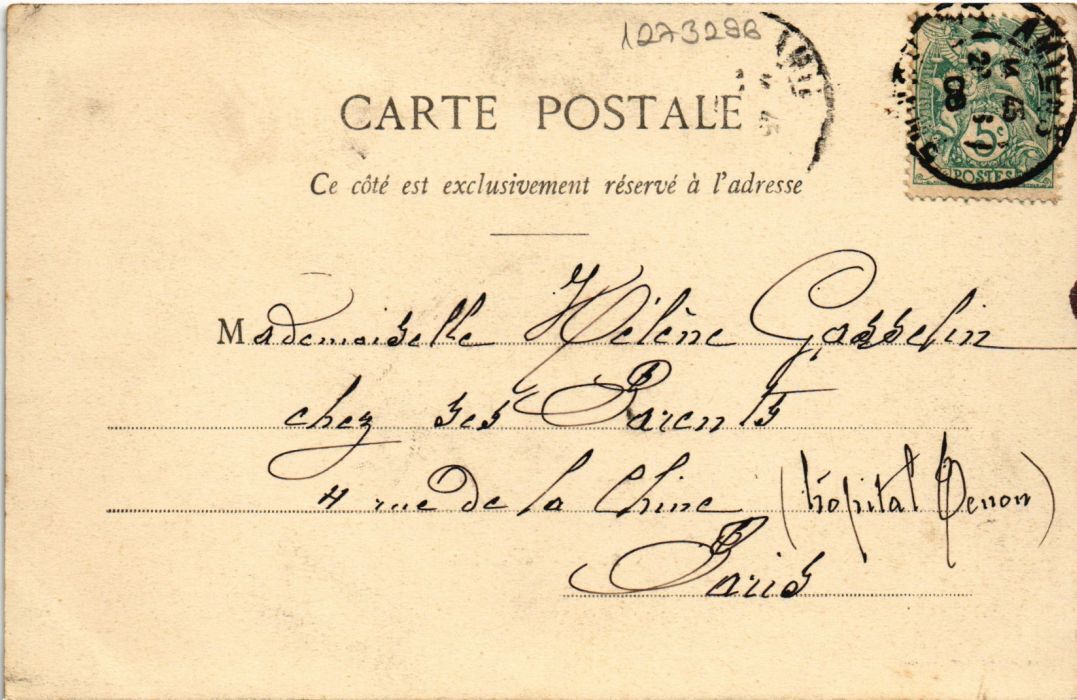 1273298
CARTE POSTALE
Ce côté est exclusivement réservé à l'adresse
AMIENS
5c
POSTES
Mademoiselle Hélène Gosselin
chez ses Parents
4 rue de la Chine (hôpital Tenon)
Paris